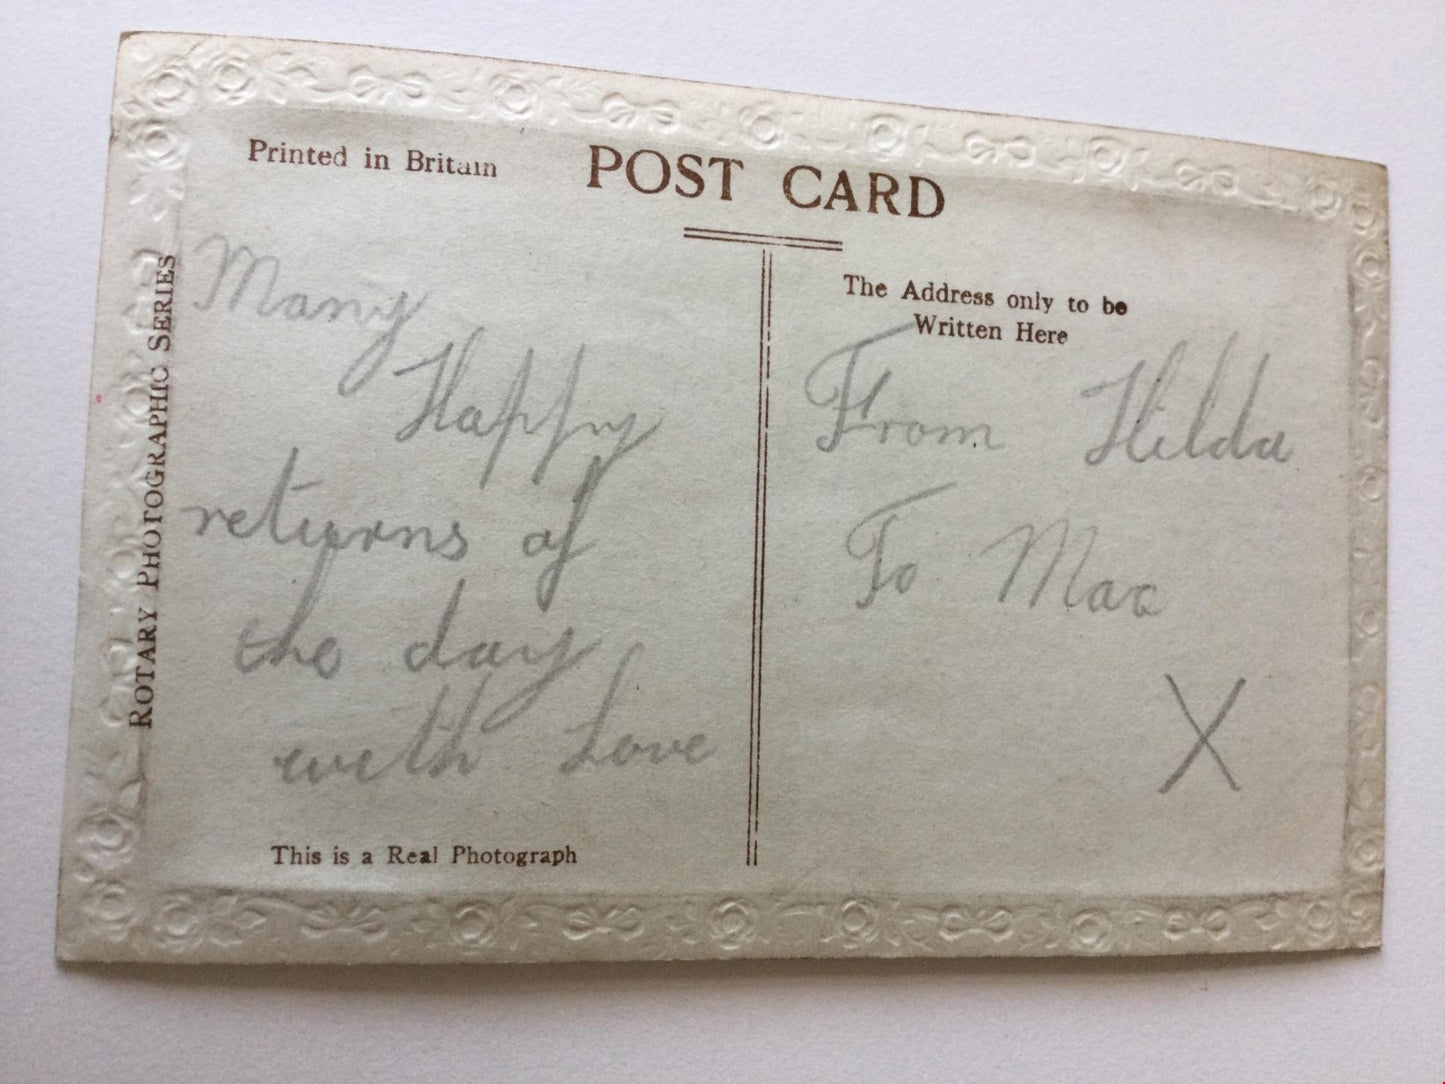 Printed in Britain
POST CARD
ROTARY PHOTOGRAPHIC SERIES
Many
Happy
returns of
the day
with Love
This is a Real Photograph
The Address only to be
Written Here
From Hilda
To Mac
X